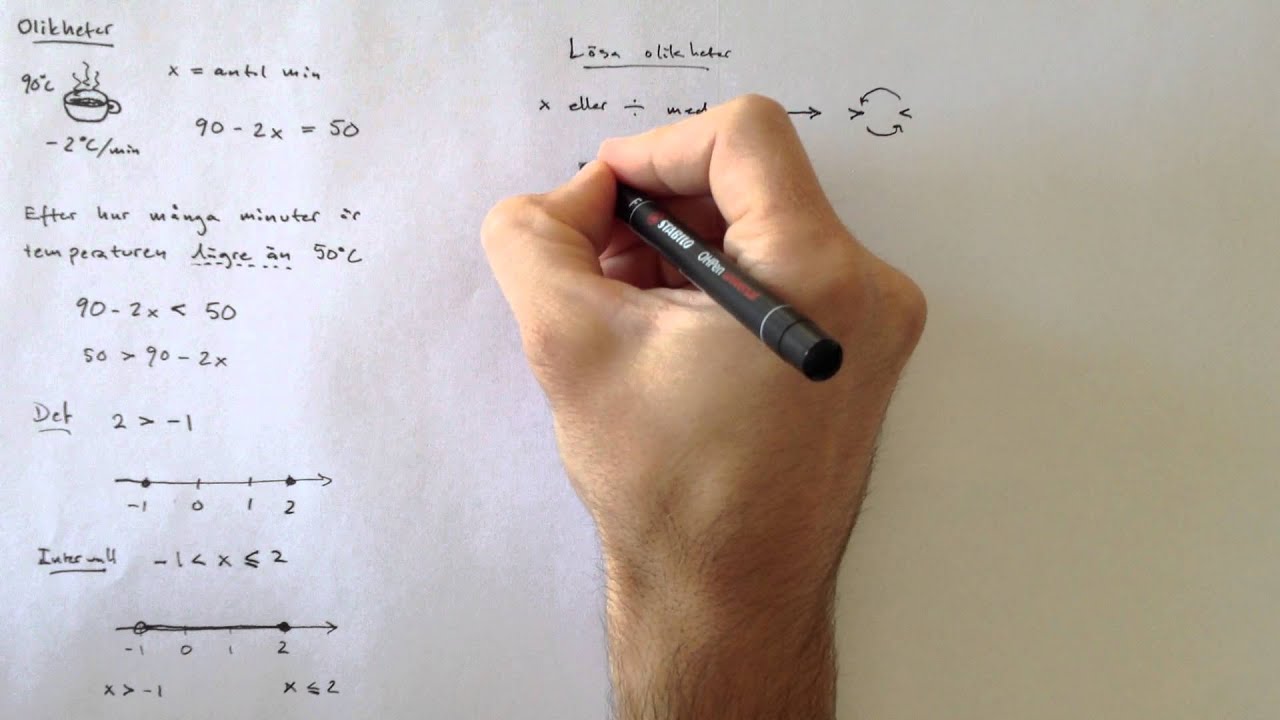 Olikheter
90°C
x = antal min
90 - 2x = 50
-2°C/min
Efter hur många minuter är
temperaturen lägre än 50°C
90 - 2x < 50
50 > 90 - 2x
Def 2 > -1
-1 0 1 2
Intervall -1 < x ≤ 2
-1 0 1 2
x > -1 x ≤ 2
Lösa olikheter
× eller ÷ med → > <
STABILO OHPen universal